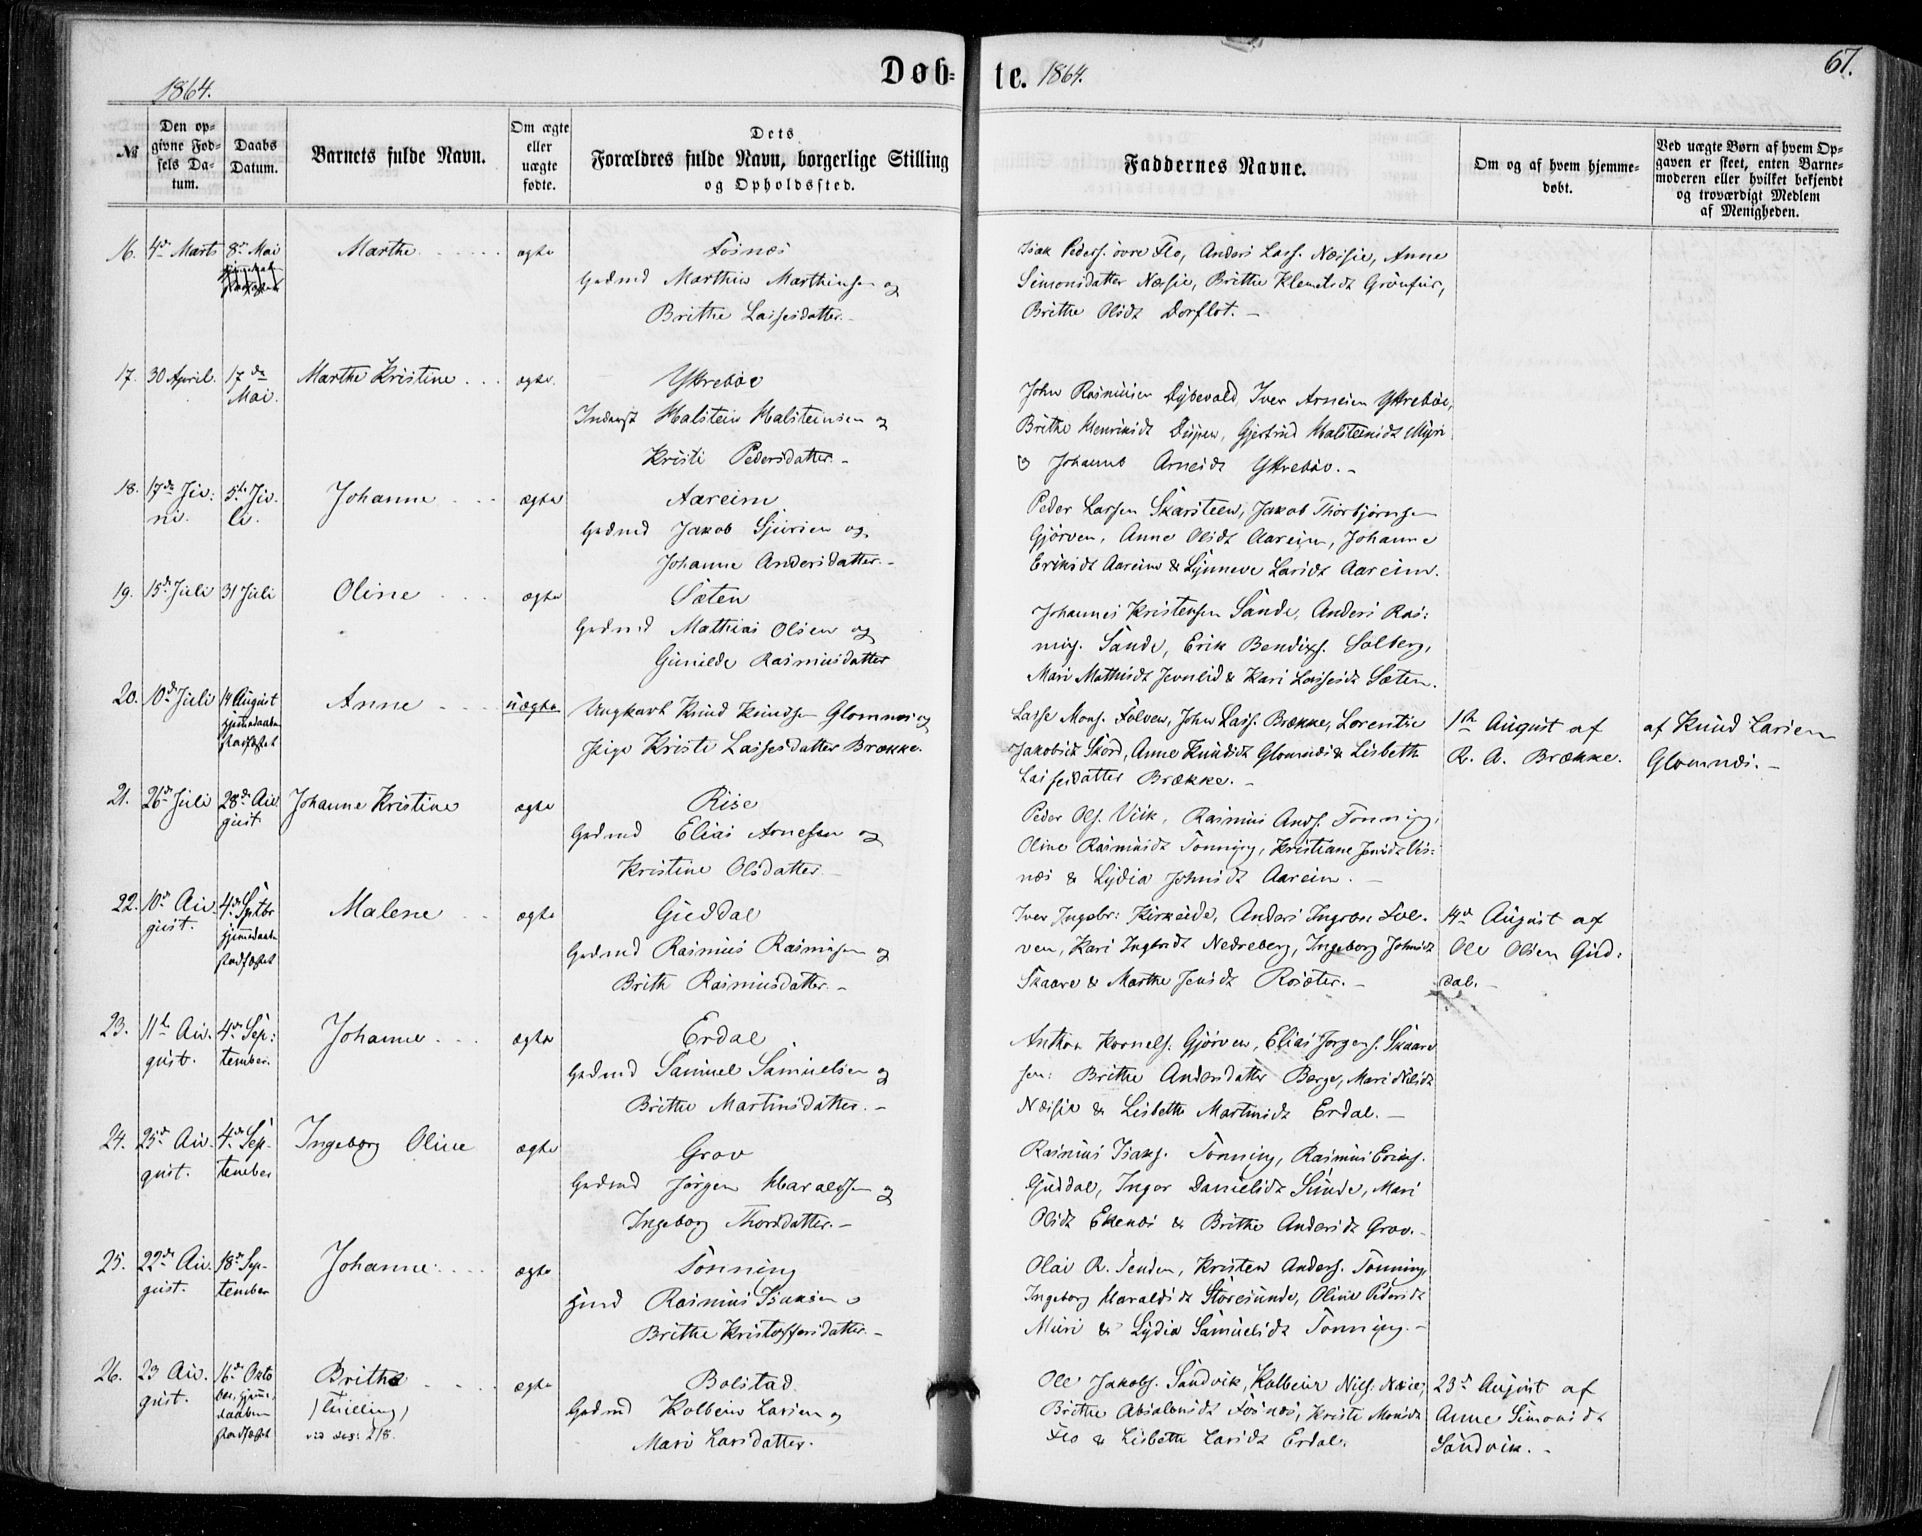 1864.
Døb=
te. 1864.
67.
№
Den op=
givne Fød=
sels Da=
tum.
Daabs
Datum.
Barnets fulde Navn.
Om ægte
eller
uægte
fødte.
Dets
Forældres fulde Navn, borgerlige Stilling
og Opholdssted.
Faddernes Navne.
Om og af hvem hjemme=
døbt.
Ved uægte Børn af hvem Op=
gaven er skeet, enten Barne=
moderen eller hvilket bekjendt
og troværdigt Medlem
af Menigheden.
16. 4de Marts 8de Mai Marthe ægte
Fosnæs
Gadmd Marthin Marthinsen og
Brithe Lassesdatter.-
Isak Peders. øvre Flo, Anders Lass. Næssie, Anne
Simonsdatter Næssie, Brithe Klemetsdt
Brithe Olsdt Dorflot. -
17. 30 April. 17de
Mai.
Marthe Kristine ægte.
Yttrebøe
Inderst Halstein Halsteinsen og
Kristi Pedersdatter.-
John Rasmusen Dybevold, Iver Arnesen Yttrebøe,
Brithe Henriksdt Gjertrud Halsteinsdt Myri
& Johanne Arnesdt Yttrebøe.-
18. 17de Ju=
ni.
5te Ju-
li.
Johanne ægte
Aareim
Gadmd Jakob Sjursen og
Johanne Andersdatter.-
Peder Larsen Skarsteen, Jakob Thorbjørnsen
Gjørven, Anne Olsdt Aareim, Johanne
Eriksdt Aareim & Synneve Larsdt Aareim.
19. 15de Juli 31 Juli Oline ægte
Sæten
Gadmd Mathias Olsen og
Gunilde Rasmusdatter
Johannes Kristensen Sande, Anders Ras=
mus. Sande, Erik Bendixs. Solberg,
Mari Mathisdt & Kari Lassesdt Sæten.
20. 10de Juli 14 August
hjemmedaaben
stadfæstet
Anne uægte
Ungkarl Knud Knudsen Glomnæs og
Pige Kristi Lassesdatter Brække.
Lasse Mons. Folven, John Lass. Brække, Lorentse
Jakobsdt Skord, Anne Knudsdt Glomnæs & Lisbeth
Lassesdatter Brække.-
1te August af
R. A. Brække.
af Knud Larsen
Glomnæs.-
21. 26de Juli 28de Au
gust
Johanne Kristine ægte
Rise
Gadmd Elias Arnesen og
Kristine Olsdatter.-
Peder Ols. Viik, Rasmus Ands. Tonning,
Oline Rasmusdt Tonning, Kristiane Jensdt Vis=
næs & Lydia Johnsdt Aareim.-
22. 10de Au.
gust.
4de Septbr
hjemmedaaben
stadfæstet
Malene ægte
Guddal
Gadmd Rasmus Rasmusen og
Brith Rasmusdatter.-
Iver Ingebr: Kirkeide, Anders Ingebr: Fol-
ven, Kari Ingbrdt Nedreberg, Ingeborg Johnsdt
Skaare & Marthe Jensdt Rosæter.-
14de August af
Ole Olsen Gud=
dal.-
23. 11te Au.
gust.
4de Sep=
tember.
Johanne ægte
Erdal
Gadmd Samuel Samuelsen og
Brithe Martinsdatter.-
Anthon Kornels. Gjørven, Elias Jørgens. Skaare
sen: Brithe Andersdatter Berge, Mari Nilsdt
Næssie & Lisbeth Martinsdt Erdal.-
24. 25de Au.
gust.
4de Sep-
tember
Ingeborg Oline ægte
Grov
Gadmd Jørgen Haraldsen og
Ingeborg Thorsdatter.-
Rasmus Isaks. Tonning, Rasmus Eriks.
Guddal, Inger Danielsdt Sunde, Mari
Olsdt Ekenæs & Brithe Andersdt Grov.-
25. 22de Au.
gust.
18de Sep-
tember
Johanne ægte
Tonning
Hmd Rasmus Isaksen &
Brithe Kristoffersdatter.-
Olai R. Tenden, Kristen Anders. Tonning,
Ingeborg Haraldsdt Storesunde, Oline Pedersdt
Muri & Lydia Samuelsdt Tonning.-
26. 23 Au.
gust.
16de Okto
ber, hjemme-
daaben
stadfæstet
Brithe
(Tvilling)
ægte
Bolstad.
Gadmd Kolbein Larsen og
Mari Larsdatter.
Ole Jakobs. Sandvik, Kolbein Nils. Næsie,
Brithe Absalonsdt Fosnæs, Kristi Monsdt
Flo & Lisbeth Larsdt Erdal.
23de August af
Anne Simonsdt
Sandvik.-